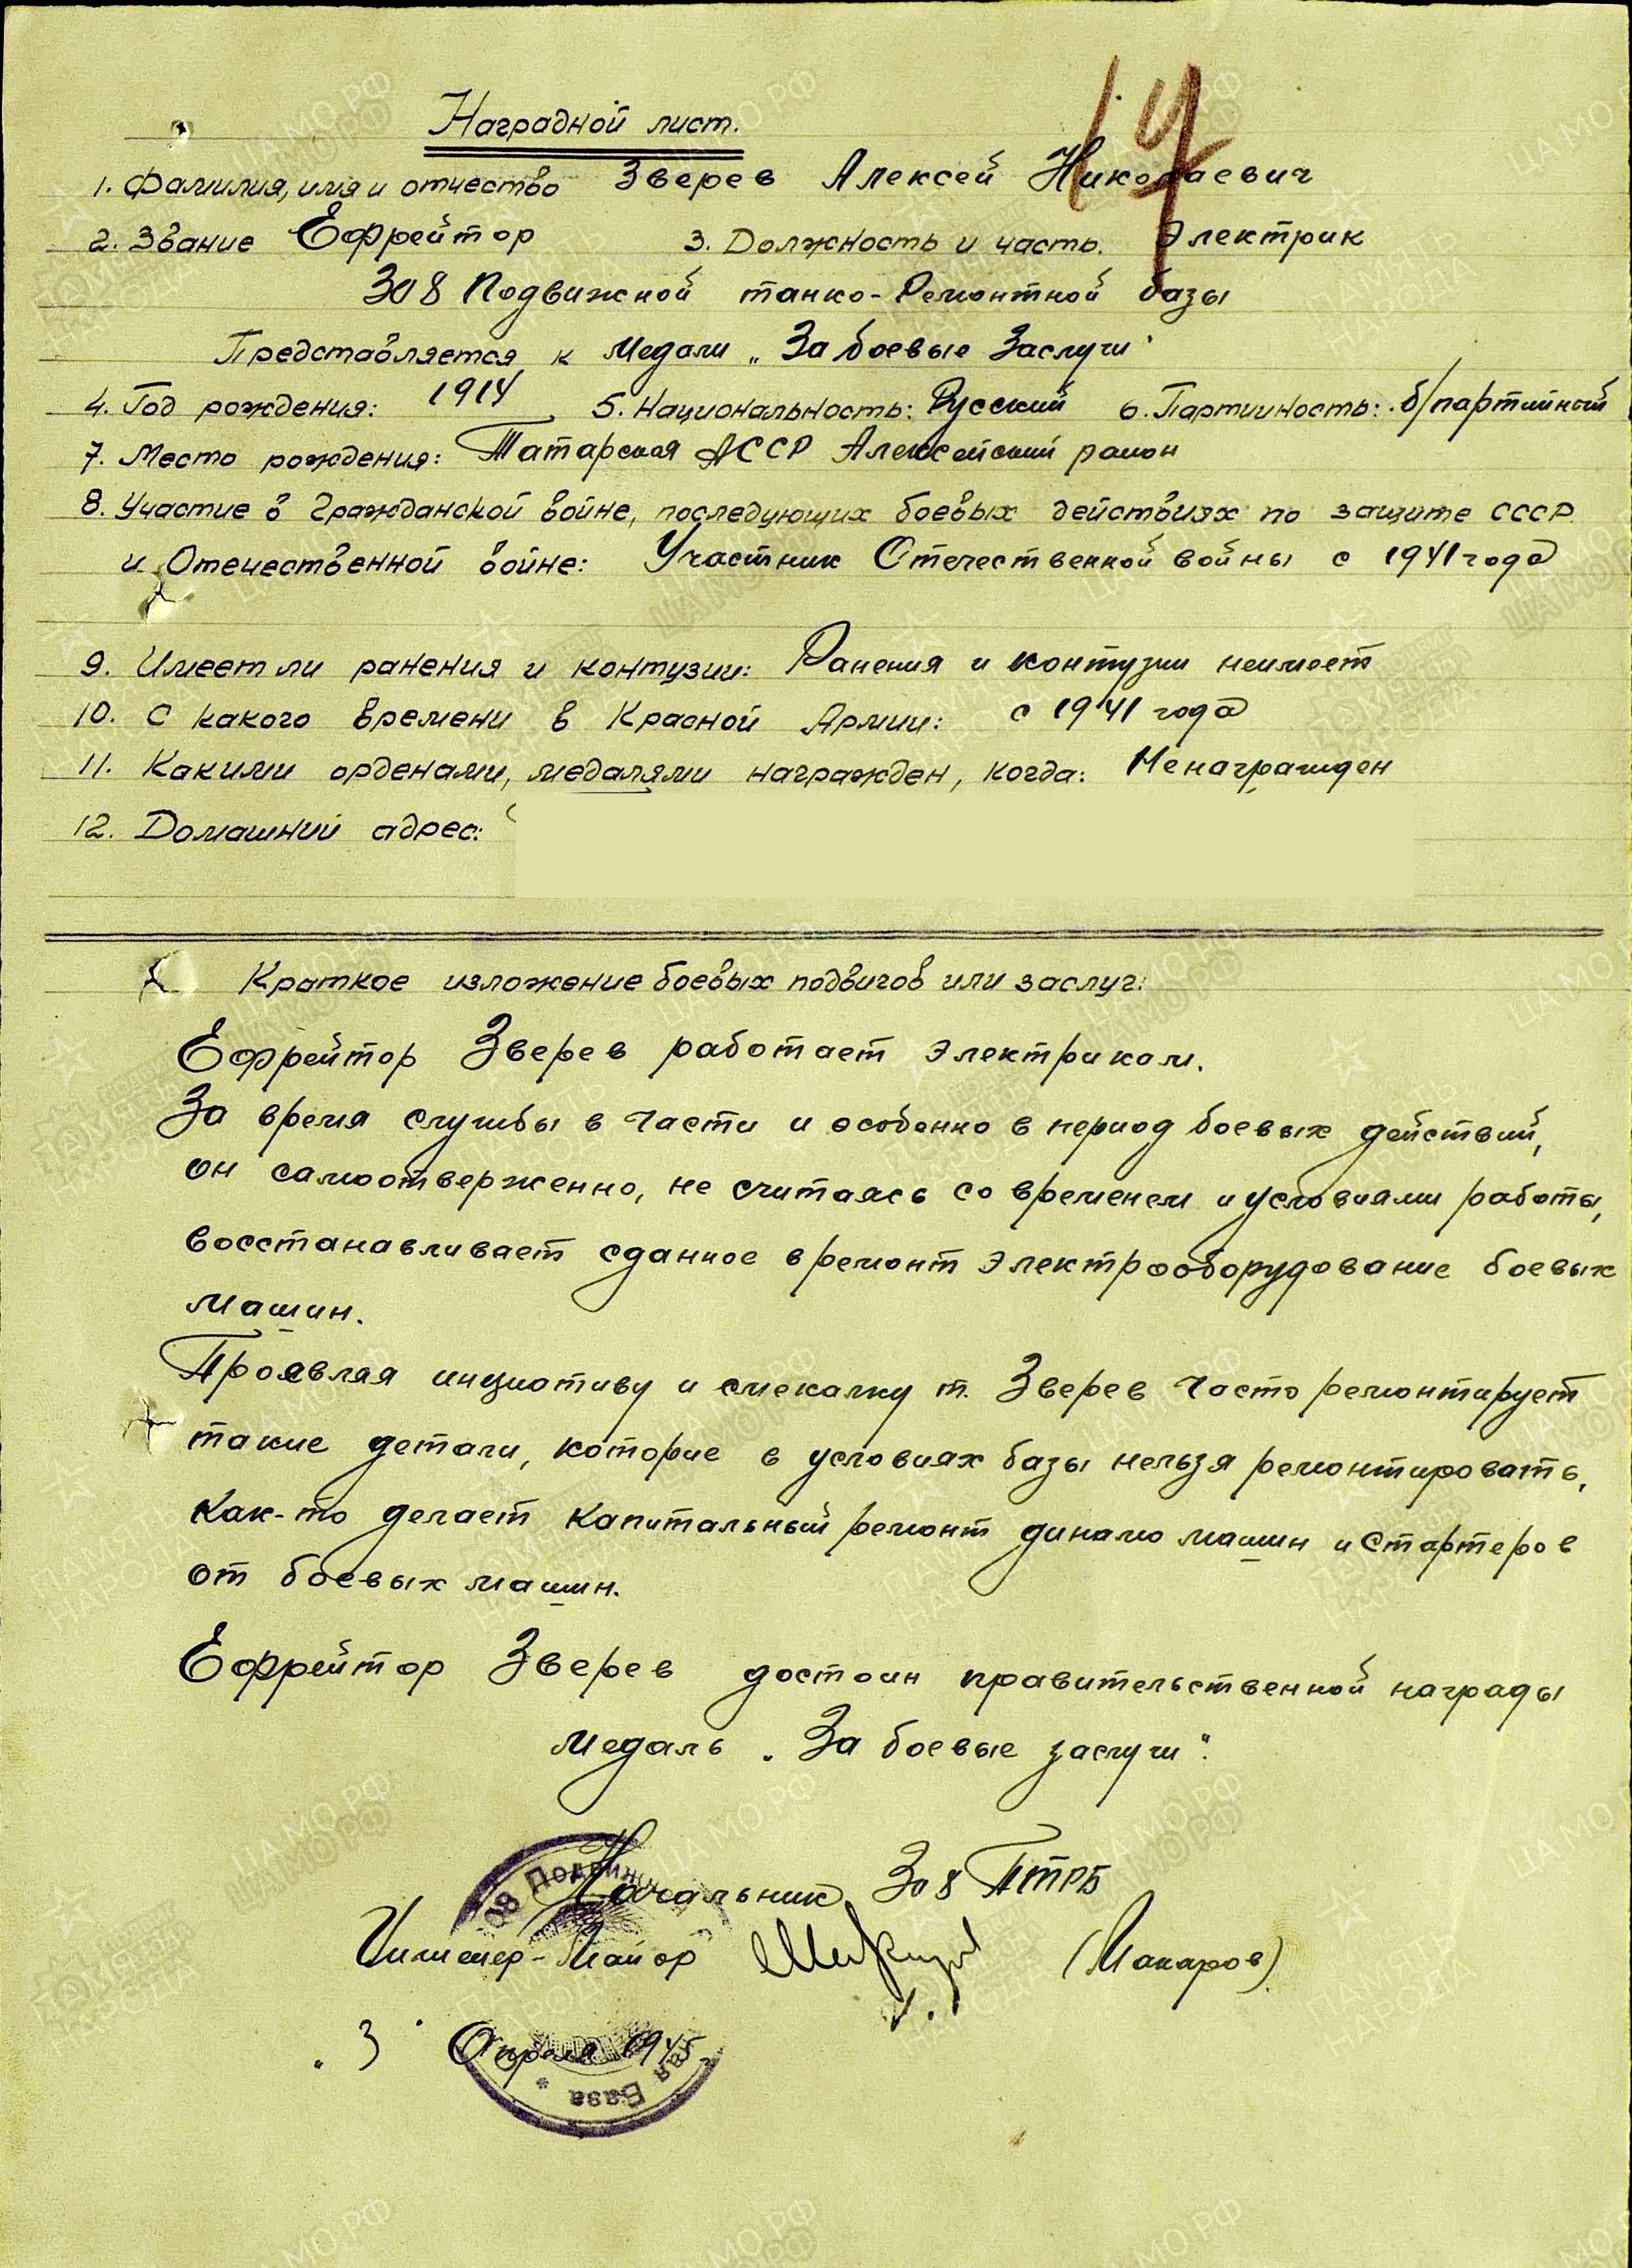 14
Наградной лист.
1. Фамилия, имя и отчество Зверев Алексей Николаевич
2. Звание Ефрейтор 3. Должность и часть. Электрик
308 Подвижной танко-Ремонтной базы
Представляется к Медали „За боевые Заслуги"
4. Год рождения: 1914, 5. Национальность: Русский 6. Партийность: б/партийный
7. Место рождения: Татарская АССР Алексейский район
8. Участие в Гражданской войне, последующих боевых действиях по защите СССР
и Отечественной войне: Участник Отечественной войны с 1941 года
9. Имеет ли ранения и контузии: Ранения и контузии неимеет
10. С какого времени в Красной Армии: с 1941 года
11. Какими орденами, медалями награжден, когда: Ненагражден
12. Домашний адрес:
Краткое изложение боевых подвигов или заслуг:
Ефрейтор Зверев работает электриком.
За время службы в части и особенно в период боевых действий,
он самоотверженно, не считаясь со временем и условиями работы,
восстанавливает сданное в ремонт электрооборудование боевых
машин.
Проявляя инциативу и смекалку т. Зверев часто ремонтирует
такие детали, которие в условиях базы нельзя ремонтировать,
как-то делает капитальный ремонт динамо машин и стартеров
от боевых машин.
Ефрейтор Зверев достоин правительственной награды
медаль „За боевые заслуги".
Начальник 308 ПТРБ
Инженер-Майор (Макаров)
„3" Апреля 1945
08 Подвижн
База